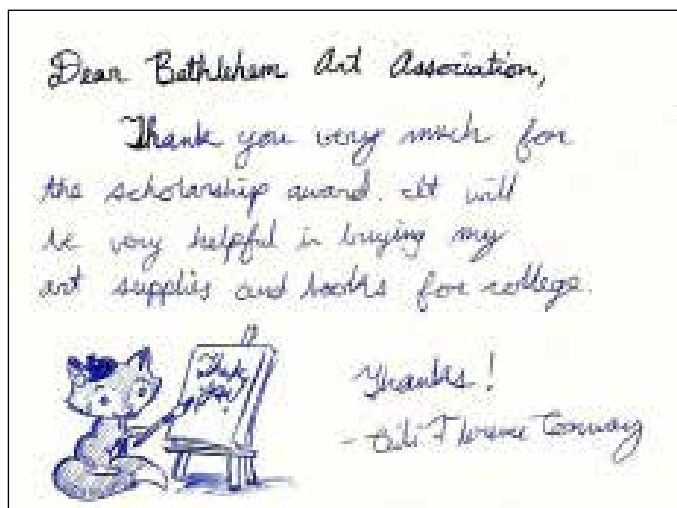 Dear Bethlehem Art Association,
Thank you very much for
the scholarship award. It will
be very helpful in buying my
art supplies and books for college.
Thank
You!
Thanks!
- Conway